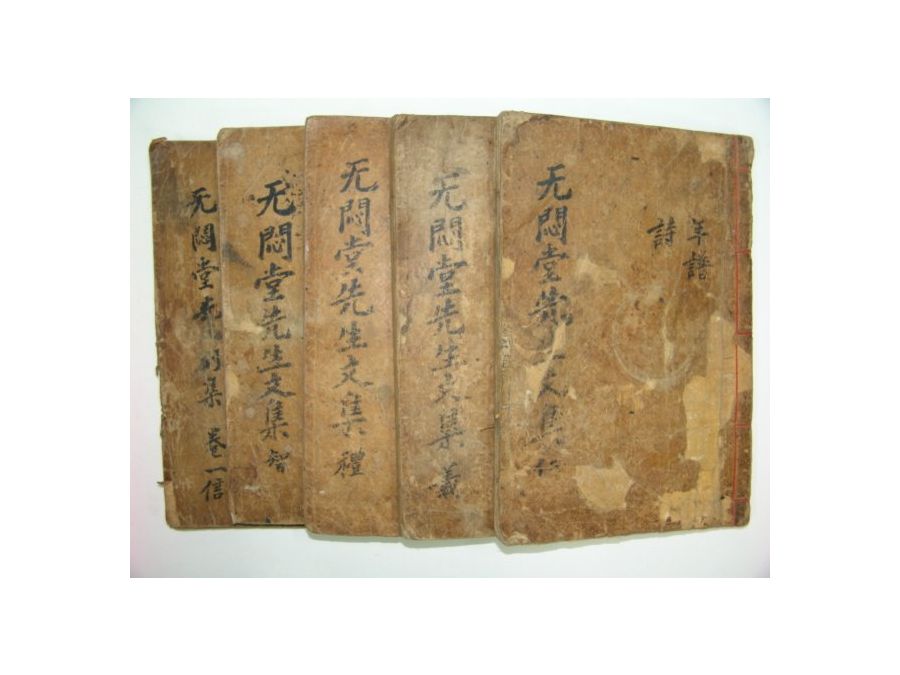 年譜
詩
无悶堂先生文集 仁
无悶堂先生文集 義
无悶堂先生文集 禮
无悶堂先生文集 智
无悶堂先生別集 卷一 信